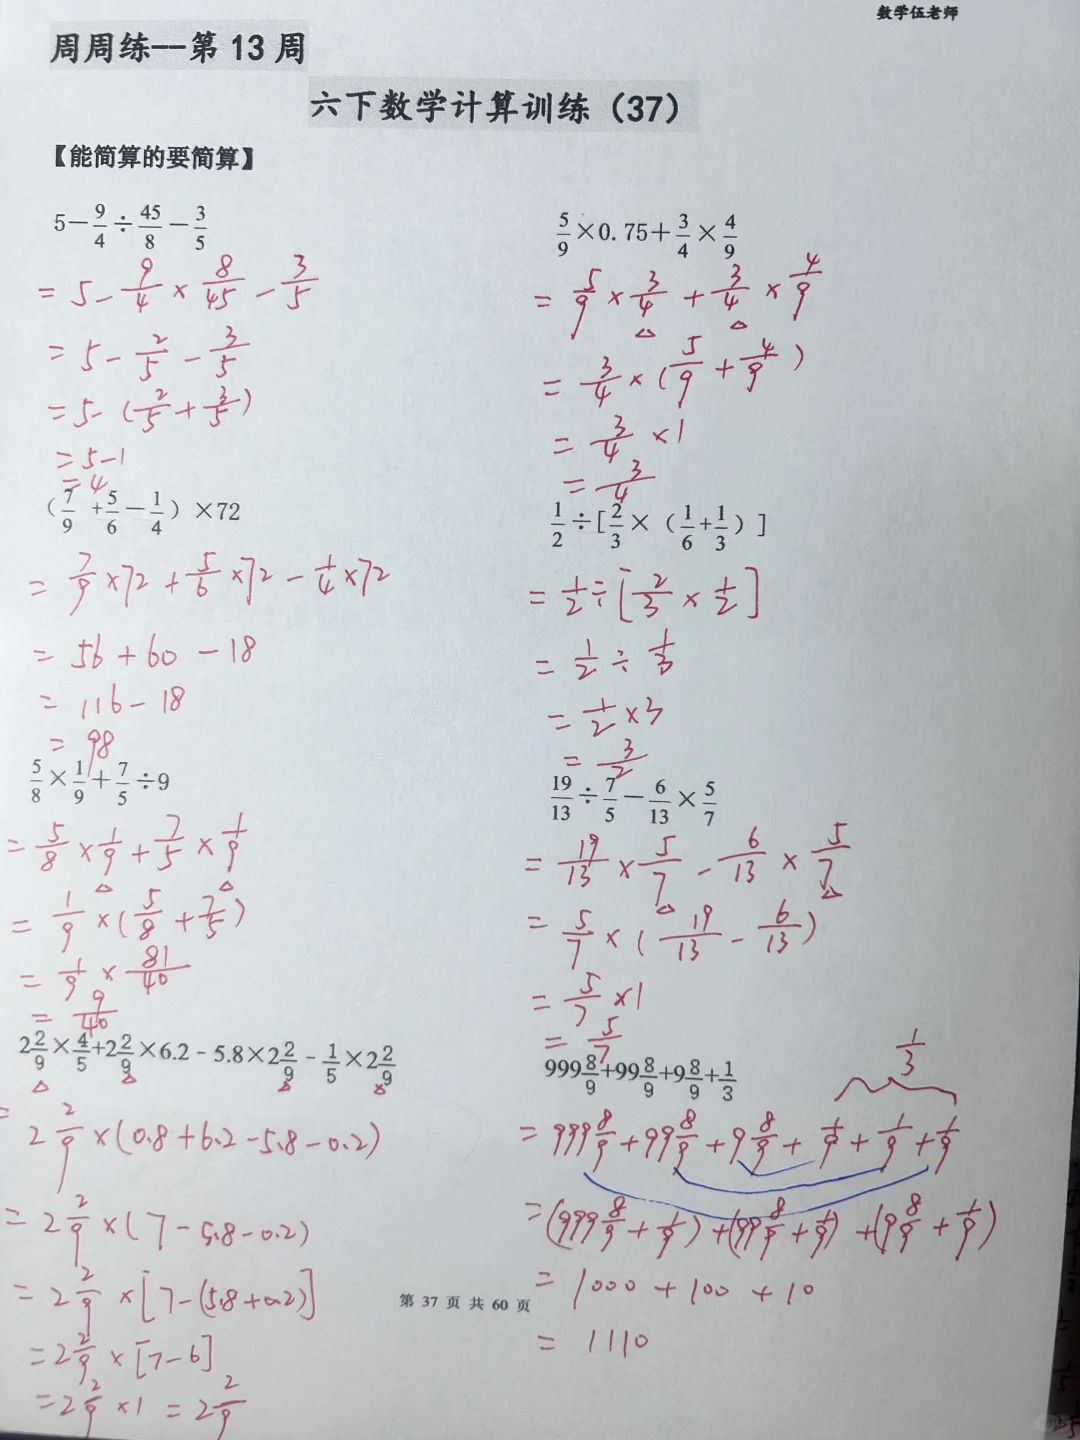 数学伍老师
周周练--第 13 周
六下数学计算训练（37）
【能简算的要简算】
5－9/4÷45/8－3/5
= 5 - 9/4 × 8/45 - 3/5
= 5 - 2/5 - 3/5
= 5 - (2/5 + 3/5)
= 5 - 1
= 4
5/9×0.75＋3/4×4/9
= 5/9 × 3/4 + 3/4 × 4/9
= 3/4 × (5/9 + 4/9)
= 3/4 × 1
= 3/4
（7/9+5/6－1/4）×72
= 7/9 × 72 + 5/6 × 72 - 1/4 × 72
= 56 + 60 - 18
= 116 - 18
= 98
1/2÷[2/3×（1/6+1/3）]
= 1/2 ÷ [2/3 × 1/2]
= 1/2 ÷ 1/3
= 1/2 × 3
= 3/2
5/8×1/9＋7/5÷9
= 5/8 × 1/9 + 7/5 × 1/9
= 1/9 × (5/8 + 7/5)
= 1/9 × 81/40
= 9/40
19/13÷7/5－6/13×5/7
= 19/13 × 5/7 - 6/13 × 5/7
= 5/7 × (19/13 - 6/13)
= 5/7 × 1
= 5/7
2 2/9×4/5+2 2/9×6.2－5.8×2 2/9－1/5×2 2/9
= 2 2/9 × (0.8 + 6.2 - 5.8 - 0.2)
= 2 2/9 × (7 - 5.8 - 0.2)
= 2 2/9 × [7 - (5.8 + 0.2)]
= 2 2/9 × [7 - 6]
= 2 2/9 × 1 = 2 2/9
999 8/9+99 8/9+9 8/9+1/3
1/3
= 999 8/9 + 99 8/9 + 9 8/9 + 1/9 + 1/9 + 1/9
= (999 8/9 + 1/9) + (99 8/9 + 1/9) + (9 8/9 + 1/9)
= 1000 + 100 + 10
= 1110
第 37 页 共 60 页